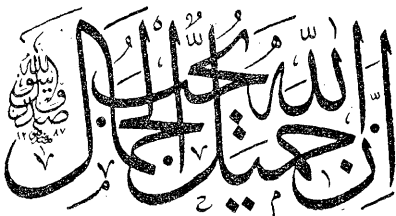 ان الله جميل يحب الجمال
صدق رسول الله